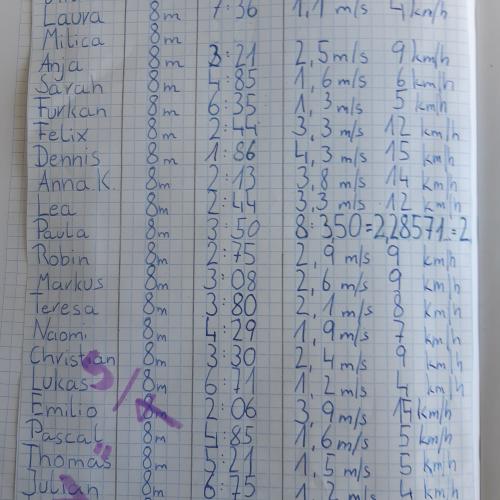 Laura 8m 7:36 1,1 m/s 4 km/h
Milica 8m
Anja 8m 3:21 2,5 m/s 9 km/h
Sarah 8m 4:85 1,6 m/s 6 km/h
Furkan 8m 6:35 1,3 m/s 5 km/h
Felix 8m 2:44 3,3 m/s 12 km/h
Dennis 8m 1:86 4,3 m/s 15 km/h
Anna K. 8m 2:13 3,8 m/s 14 km/h
Lea 8m 2:44 3,3 m/s 12 km/h
Paula 8m 3:50 8:350=2,28571=2
Robin 8m 2:75 2,9 m/s 9 km/h
Markus 8m 3:08 2,6 m/s 9 km/h
Teresa 8m 3:80 2,1 m/s 8 km/h
Naomi 8m 4:29 1,9 m/s 7 km/h
Christian 8m 3:30 2,4 m/s 9 km/h
Lukas 8m 6:71 1,2 m/s 4 km/h
Emilio 8m 2:06 3,9 m/s km/h
Pascal 8m :85 1,6 m/s 5 km/h
Thomas 8m 5:21 1,5 m/s 5 km/h
Julian 8m 6:75 1,2 m/s 4 km/h